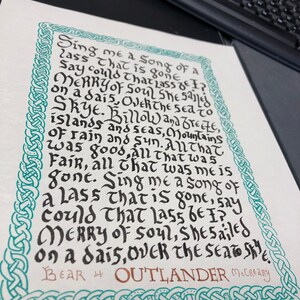 Sing me a song of a
lass that is gone
Say could that lass be I?
Merry of soul she sailed
on a dais, over the sea to
Skye. Billow and breeze,
islands and seas, mountains
of rain and sun. All that
was good, all that was
fair, all that was me is
gone. Sing me a song of
a lass that is gone, say
could that lass be I?
Merry of soul, she sailed
on a dais, over the sea to Skye.
Bear 4 OUTLANDER McCreary